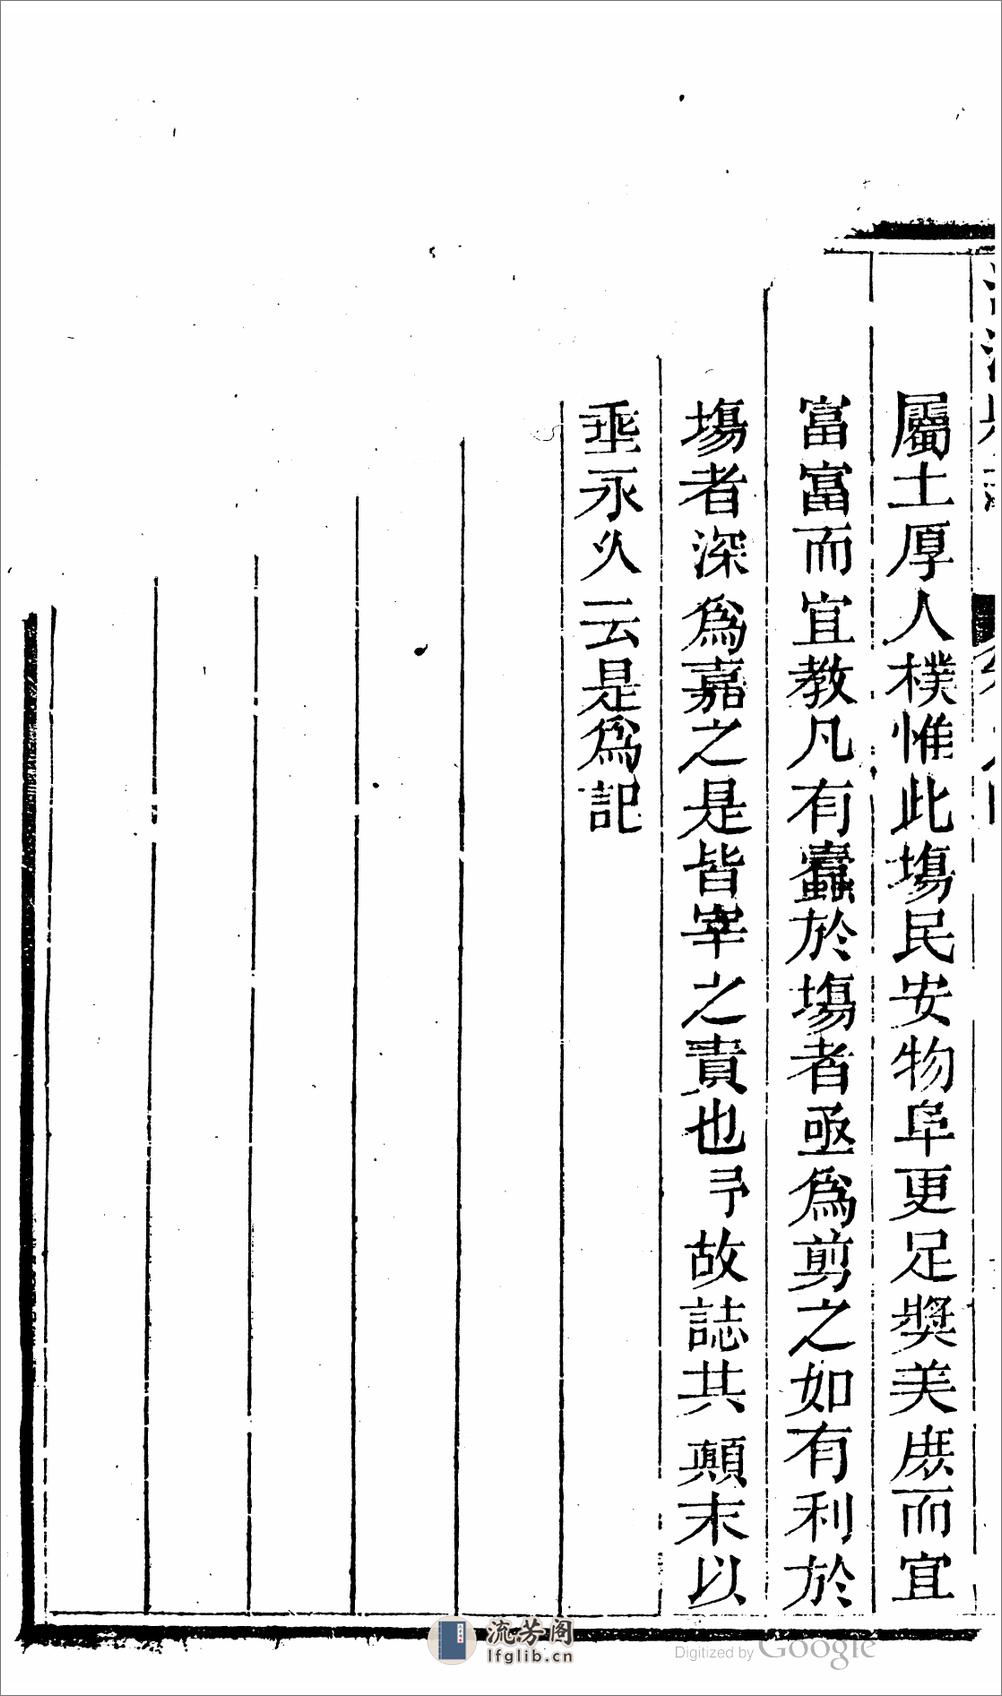 屬土厚人樸惟此塲民安物阜更足獎美庶而宜
富富而宜教凡有蠹於塲者亟爲剪之如有利於
塲者深爲嘉之是皆宰之責也予故誌其顛末以
垂永久云是爲記
流芳阁
lfglib.cn
Digitized by Google